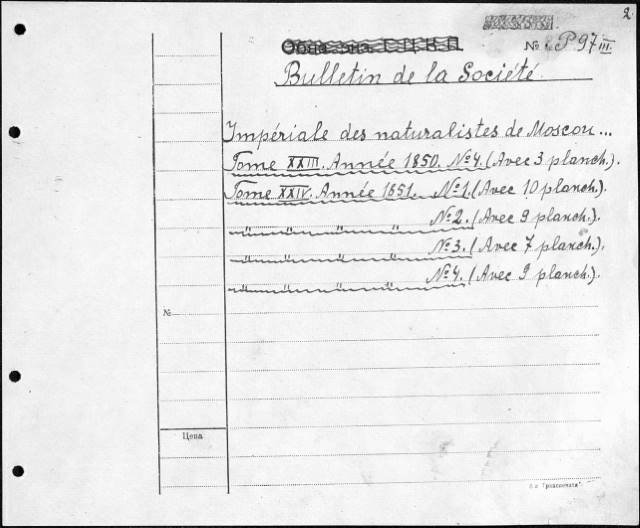 2
№ P 97 III
Bulletin de la Société
Impériale des naturalistes de Moscou...
Tome XXIII. Année 1850. № 4. (Avec 3 planch.).
Tome XXIV. Année 1851. № 1. (Avec 10 planch.).
" " " " № 2. (Avec 9 planch.).
" " " " № 3. (Avec 7 planch.).
" " " " № 4. (Avec 9 planch.).
№
Цена